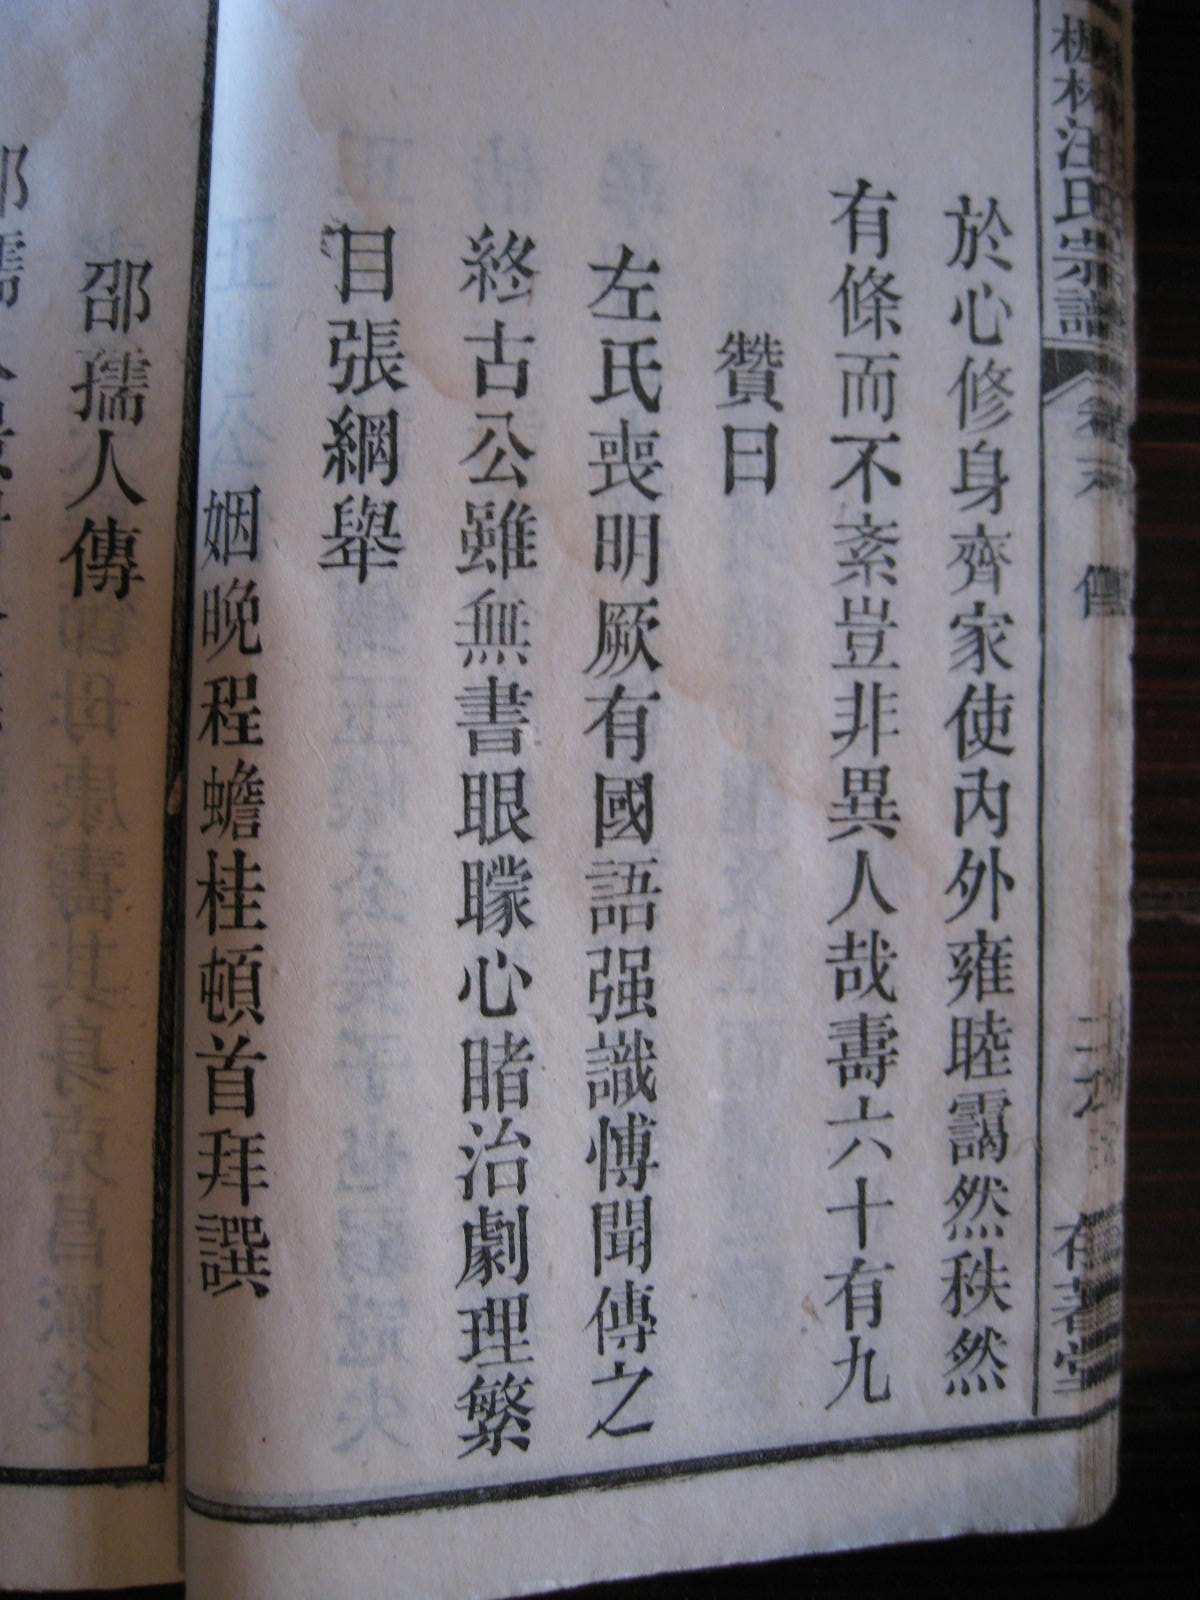 林汪氏宗譜
傳
於心修身齊家使內外雍睦靄然秩然
有條而不紊豈非異人哉壽六十有九
贊曰
左氏喪明厥有國語强識愽聞傳之
終古公雖無書眼矇心睹治劇理繁
目張綱舉
姻晚程蟾桂頓首拜譔
邵孺人傳